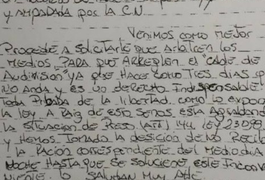 Y AMPARADA POR LA C.N.
VENIMOS COMO MEJOR
PROCEDE A SOLICITARLE QUE ARBITREN LOS
MEDIOS PARA QUE ARREGLEN EL "CABLE DE
AUDIVISIÓN" YA QUE HACE SOLO TRES DIAS QUE
NO ANDA Y ES UN DERECHO INDISPENSABLE
TODA PRIVADA DE LA LIBERTAD, COMO LO EXPONE
LA LEY. A RAIZ DE ESTO SENOS ESTA AGRAVANDO
LA SITUACION DE PRESO (ART) 144 LEY 23098
Y HEMOS TOMADO LA DESICIÓN DE NO RECIBIR
LA RACIÓN CORRESPONDIENTE DEL MEDIODIA
NOCHE HASTA QUE SE SOLUCIONE ESTE INCONVE
NIENTE. LO SALUDAN MUY ATE.